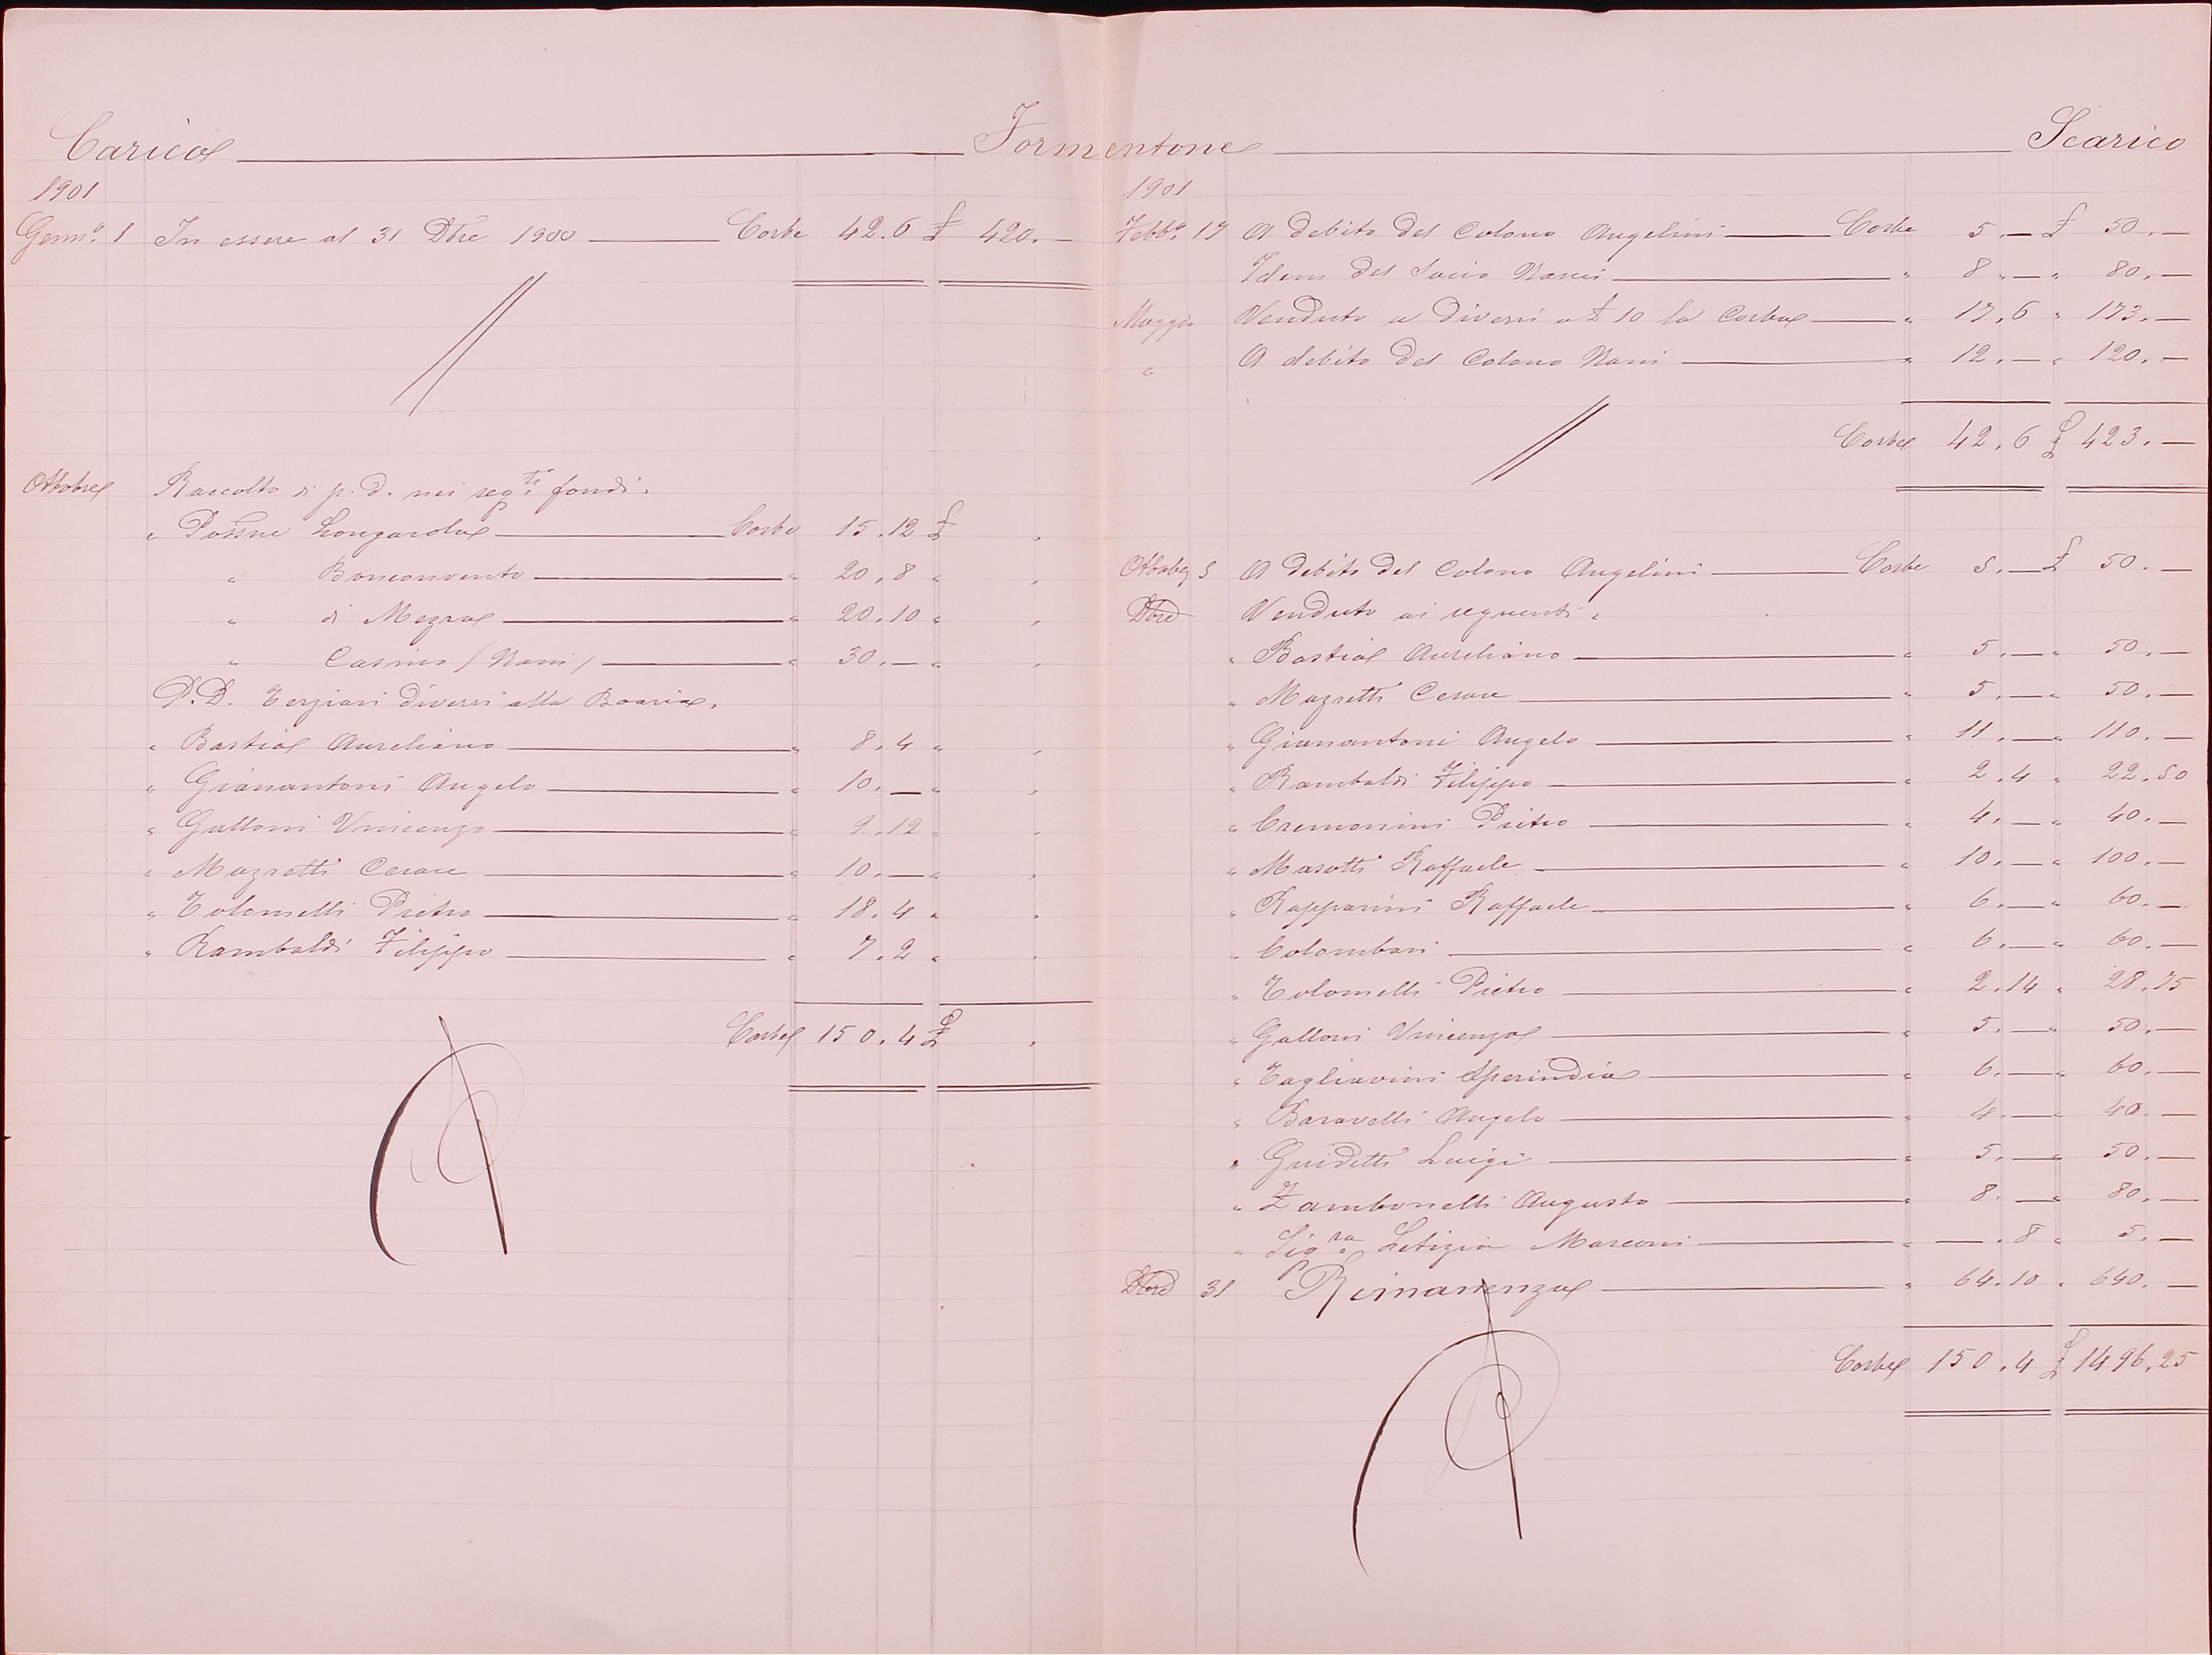 Carico Formentone Scarico
1901
Genn.º 1 In essere al 31 Dbre 1900 Corbe 42.6 £ 420.—
Ottobre Raccolto di p. d. nei seg.ti fondi.
" Possne Longarola Corbe 15.12 £ "
" Bonconvento " 20.8 " "
" di Mezzo " 20.10 " "
" Casino (Nani) " 30.— " "
P.D. Terziari diversi alla Boaria.
" Bastia Aureliano " 8.4 " "
" Gianantoni Angelo " 10.— " "
" Galloni Vincenzo " 9.12 " "
" Mazzetti Cesare " 10.— " "
" Tolomelli Pietro " 18.4 " "
" Rambaldi Filippo " 7.2 " "
Corbe 150.4 £ "
1901
Febb.º 17 A debito del Colono Angelini Corbe 5.— £ 50.—
Idem del Socio Nanni " 8.— " 80.—
Maggio Venduto a diversi a £ 10 la Corba " 17.6 " 173.—
" A debito del Colono Nani " 12.— " 120.—
Corbe 42.6 £ 423.—
Ottobre 5 A debito del Colono Angelini Corbe 5.— £ 50.—
Dbre Venduto ai seguenti.
" Bastia Aureliano " 5.— " 50.—
" Mazzetti Cesare " 5.— " 50.—
" Gianantoni Angelo " 11.— " 110.—
" Rambaldi Filippo " 2.4 " 22.50
" Cremonini Pietro " 4.— " 40.—
" Masotti Raffaele " 10.— " 100.—
" Rapparini Raffaele " 6.— " 60.—
" Colombari " 6.— " 60.—
" Tolomelli Pietro " 2.14 " 28.75
" Galloni Vincenzo " 5.— " 50.—
" Tagliavini Sperindia " 6.— " 60.—
" Baravelli Angelo " 4.— " 40.—
" Guidetti Luigi " 5.— " 50.—
" Zambonelli Augusto " 8.— " 80.—
" Sig.ra Letizia Marconi " —.8 " 5.—
Dbre 31 Rimanenza " 64.10 " 640.—
Corbe 150.4 £ 1496.25